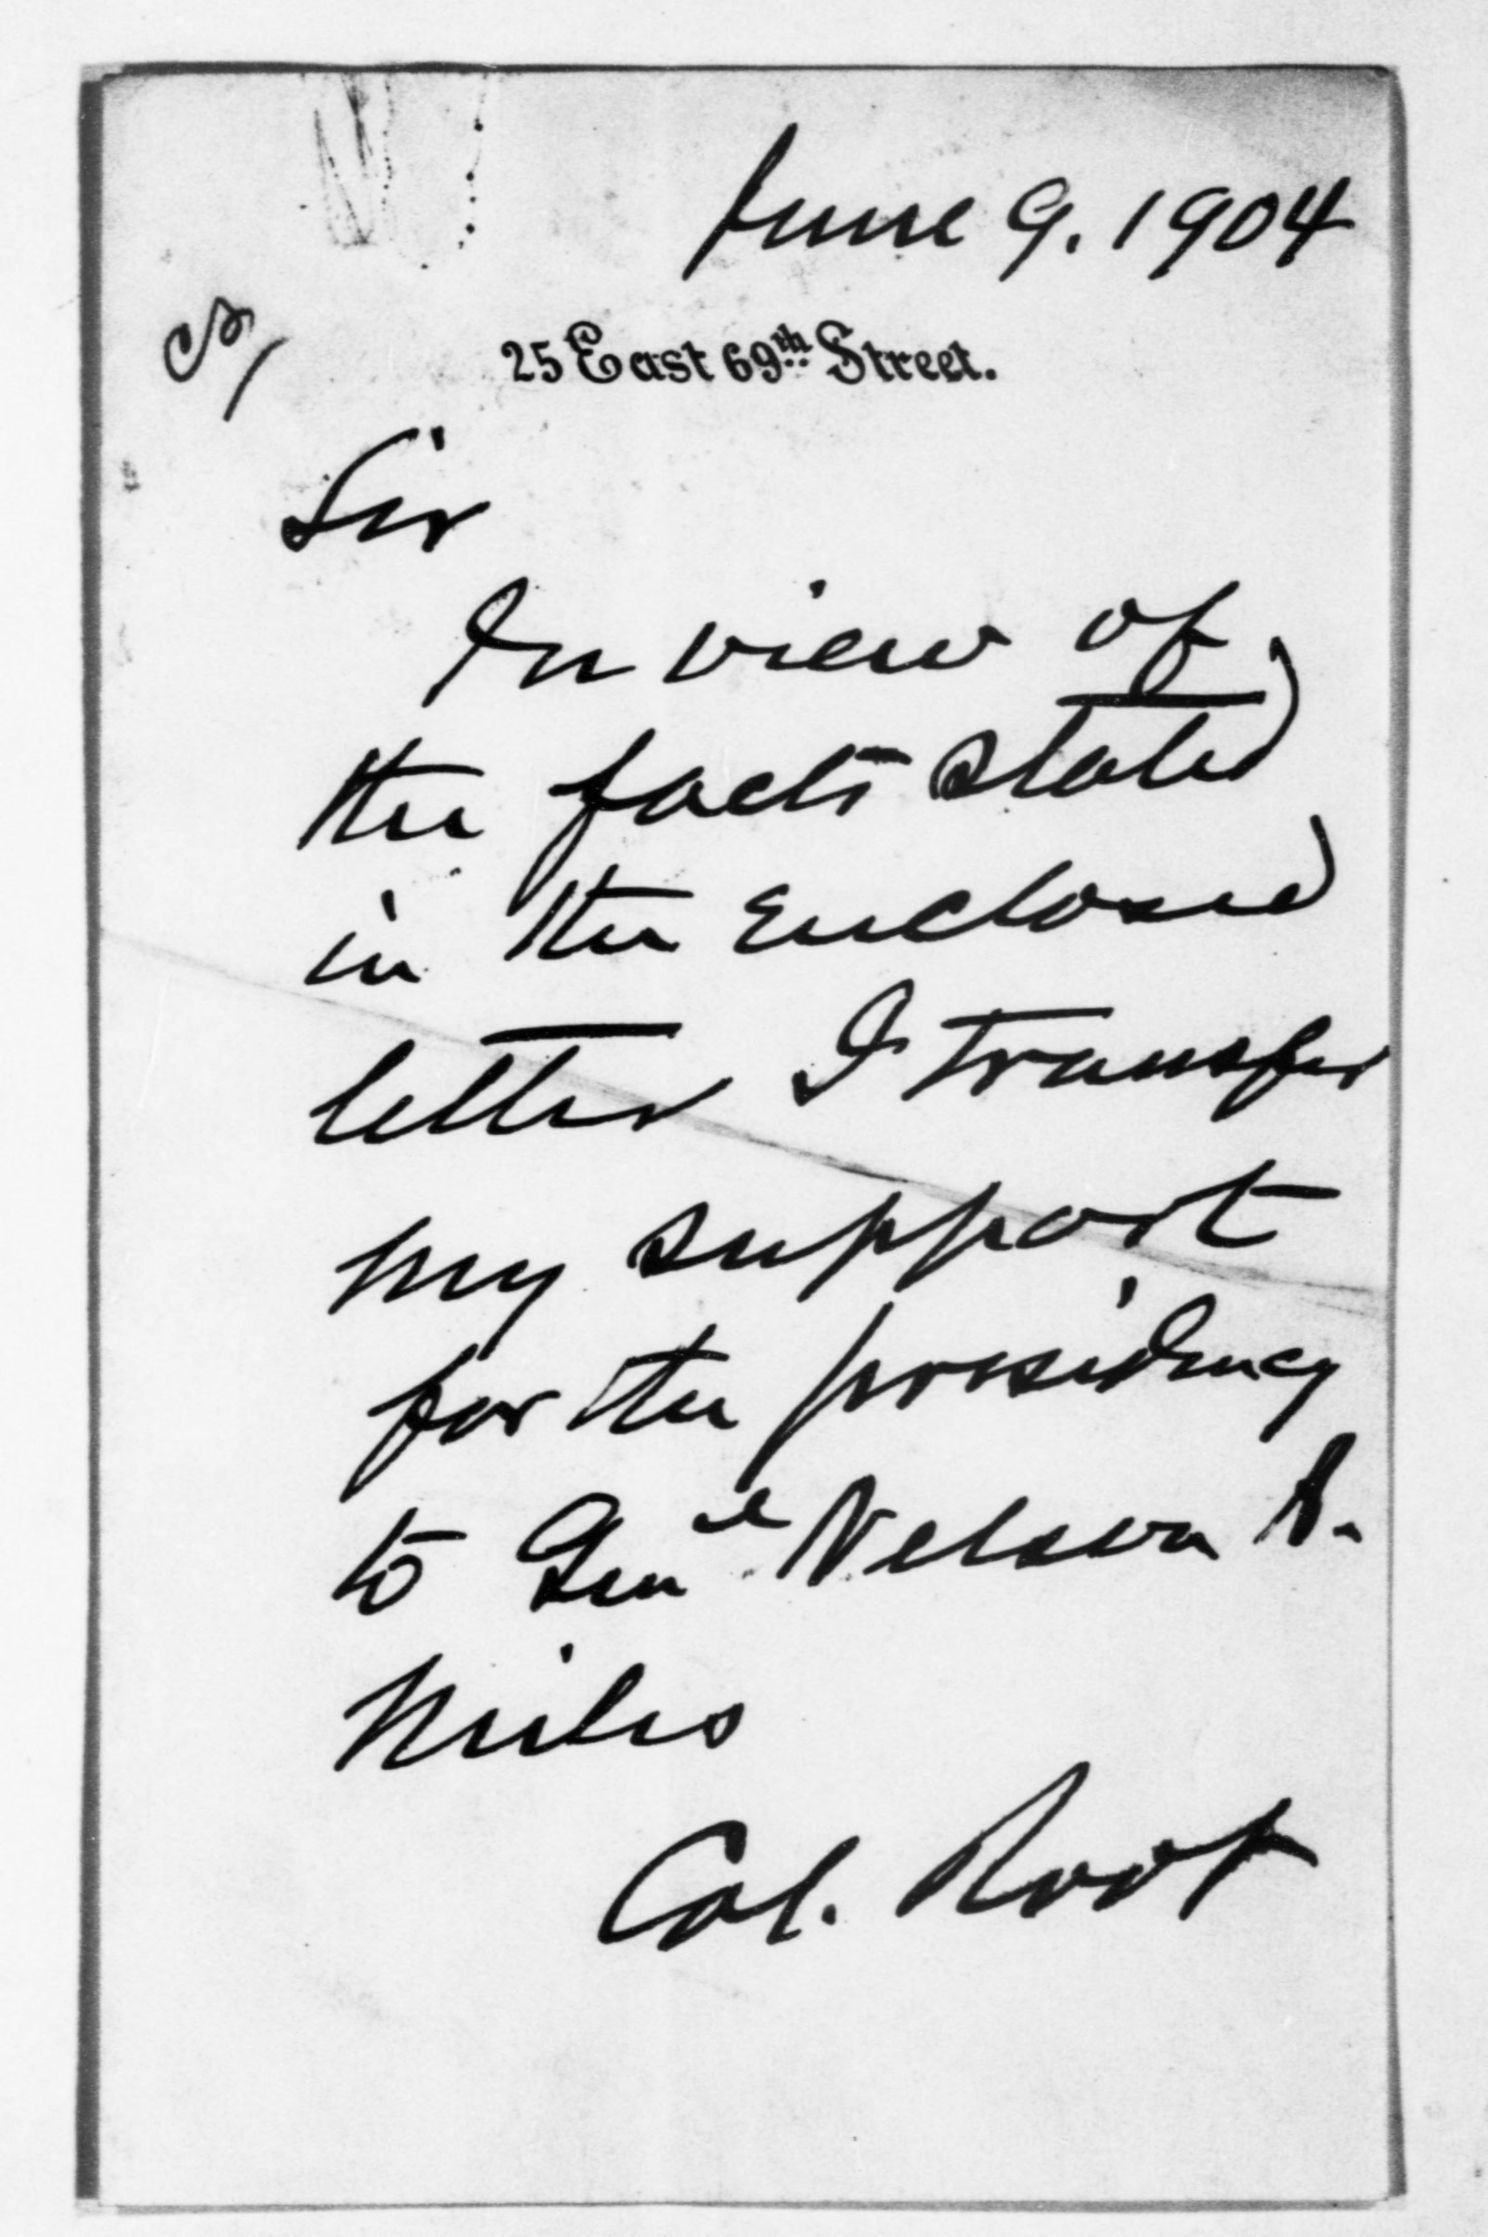 June 9. 1904
25 East 69th Street.
Sir
In view of
the facts stated
in the enclosed
letter I transfer
my support
for the presidency
to Genl Nelson A.
Miles
Col. Root